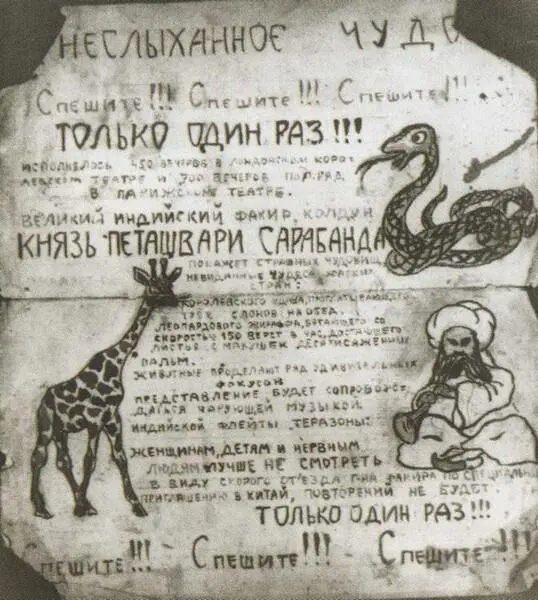 НЕСЛЫХАННОЕ ЧУДО
Спешите!!! Спешите!!! Спешите!!!
ТОЛЬКО ОДИН РАЗ!!!
ИСПОЛНЯЛОСЬ 450 ВЕЧЕРОВ В ЛОНДОНСКОМ КОРО-
ЛЕВСКОМ ТЕАТРЕ И 700 ВЕЧЕРОВ ПОДРЯД
В ПАРИЖСКОМ ТЕАТРЕ.
ВЕЛИКИЙ ИНДИЙСКИЙ ФАКИР, КОЛДУН
КНЯЗЬ ПЕТАШВАРИ САРАБАНДА
ПОКАЖЕТ СТРАШНЫХ ЧУДОВИЩ,
НЕВИДАННЫЕ ЧУДЕСА ЖАРКИХ
СТРАН:
КОРОЛЕВСКОГО УДАВА, ПРОГЛАТЫВАЮЩЕГО
ТРЕХ СЛОНОВ НА ОБЕД.
ЛЕОПАРДОВОГО ЖИРАФА, БЕГАЮЩЕГО СО
СКОРОСТЬЮ 150 ВЕРСТ В ЧАС, ДОСТАЮЩЕГО
ЛИСТЬЯ С МАКУШЕК ДЕСЯТИСАЖЕННЫХ
ПАЛЬМ.
ЖИВОТНЫЕ ПРОДЕЛАЮТ РЯД УДИВИТЕЛЬНЫХ
ФОКУСОВ
ПРЕДСТАВЛЕНИЕ БУДЕТ СОПРОВОЖ-
ДАТЬСЯ ЧАРУЮЩЕЙ МУЗЫКОЙ
ИНДИЙСКОЙ ФЛЕЙТЫ ТЕРАЗОНЫ:
ЖЕНЩИНАМ, ДЕТЯМ И НЕРВНЫМ
ЛЮДЯМ ЛУЧШЕ НЕ СМОТРЕТЬ
В ВИДУ СКОРОГО ОТ'ЕЗДА ФАКИРА ПО СПЕЦИАЛЬН
ПРИГЛАШЕНИЮ В КИТАЙ, ПОВТОРЕНИЙ НЕ БУДЕТ.
ТОЛЬКО ОДИН РАЗ!!!
Спешите!!! Спешите!!! Спешите!!!